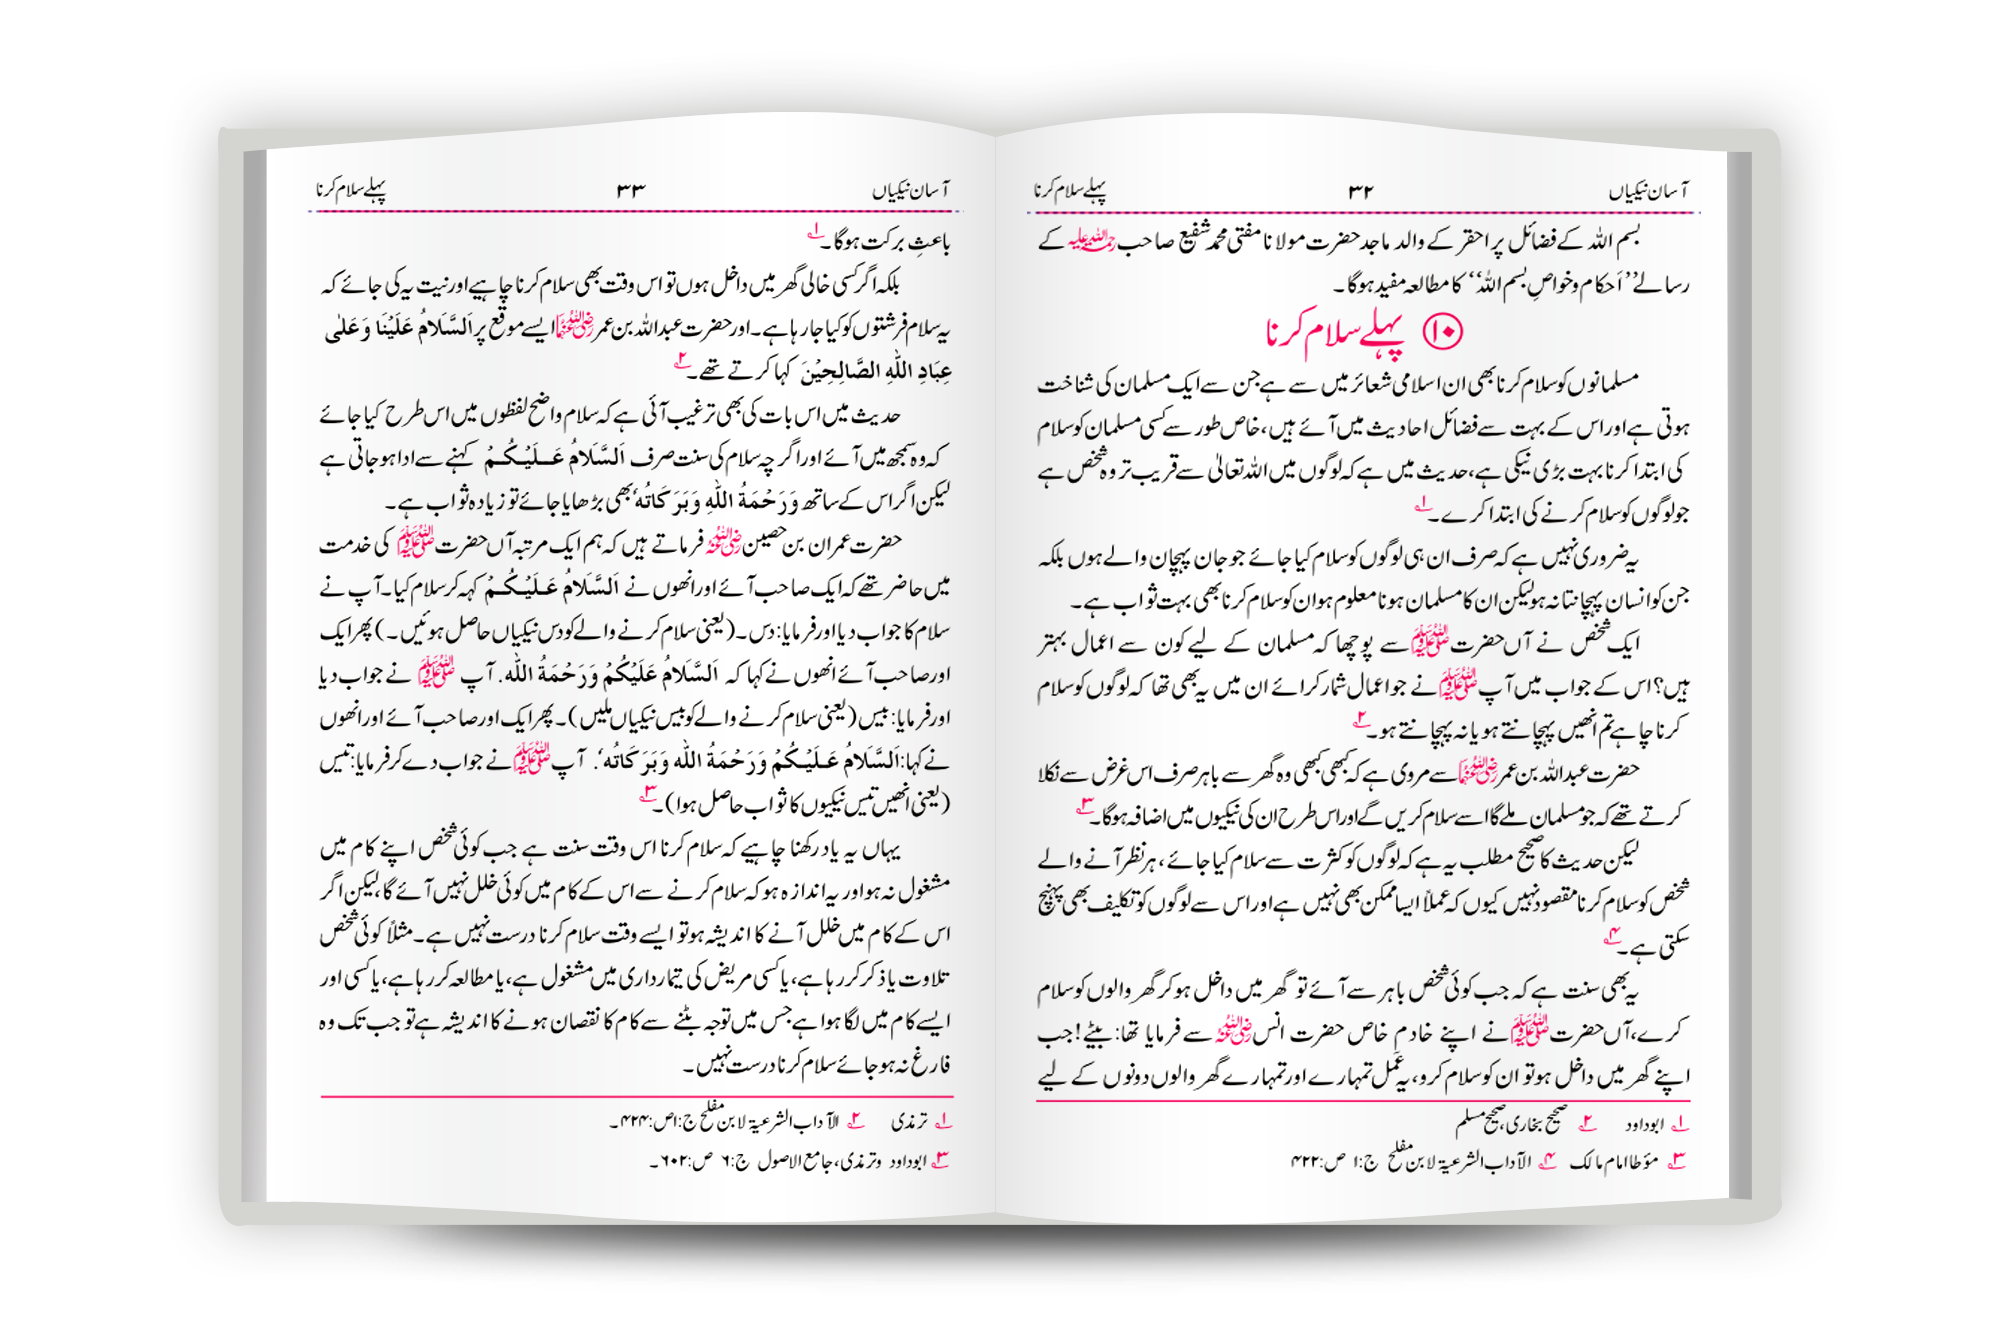 آسان نیکیاں ۳۲ پہلے سلام کرنا
بسم اللہ کے فضائل پر احقر کے والد ماجد حضرت مولانا مفتی محمد شفیع صاحب رحمۃ اللہ علیہ کے
رسالے ’’اَحکام وخواصِ بسم اللہ‘‘ کا مطالعہ مفید ہوگا۔
۱۰ پہلے سلام کرنا
مسلمانوں کو سلام کرنا بھی ان اسلامی شعائر میں سے ہے جن سے ایک مسلمان کی شناخت
ہوتی ہے اور اس کے بہت سے فضائل احادیث میں آئے ہیں، خاص طور سے کسی مسلمان کو سلام
کی ابتدا کرنا بہت بڑی نیکی ہے، حدیث میں ہے کہ لوگوں میں اللہ تعالیٰ سے قریب تر وہ شخص ہے
جو لوگوں کو سلام کرنے کی ابتدا کرے۔ ۱؎
یہ ضروری نہیں ہے کہ صرف ان ہی لوگوں کو سلام کیا جائے جو جان پہچان والے ہوں بلکہ
جن کو انسان پہچانتا نہ ہو لیکن ان کا مسلمان ہونا معلوم ہو ان کو سلام کرنا بھی بہت ثواب ہے۔
ایک شخص نے آں حضرت ﷺ سے پوچھا کہ مسلمان کے لیے کون سے اعمال بہتر
ہیں؟ اس کے جواب میں آپ ﷺ نے جو اعمال شمار کرائے ان میں یہ بھی تھا کہ لوگوں کو سلام
کرنا چاہے تم انھیں پہچانتے ہو یا نہ پہچانتے ہو۔ ۲؎
حضرت عبداللہ بن عمر رضی اللہ عنہما سے مروی ہے کہ کبھی کبھی وہ گھر سے باہر صرف اس غرض سے نکلا
کرتے تھے کہ جو مسلمان ملے گا اسے سلام کریں گے اور اس طرح ان کی نیکیوں میں اضافہ ہوگا۔ ۳؎
لیکن حدیث کا صحیح مطلب یہ ہے کہ لوگوں کو کثرت سے سلام کیا جائے، ہر نظر آنے والے
شخص کو سلام کرنا مقصود نہیں کیوں کہ عملاً ایسا ممکن بھی نہیں ہے اور اس سے لوگوں کو تکلیف بھی پہنچ
سکتی ہے۔ ۴؎
یہ بھی سنت ہے کہ جب کوئی شخص باہر سے آئے تو گھر میں داخل ہو کر گھر والوں کو سلام
کرے، آں حضرت ﷺ نے اپنے خادمِ خاص حضرت انس رضی اللہ عنہ سے فرمایا تھا: بیٹے! جب
اپنے گھر میں داخل ہو تو ان کو سلام کرو، یہ عمل تمہارے اور تمہارے گھر والوں دونوں کے لیے
۱؎ ابوداود ۲؎ صحیح بخاری، صحیح مسلم
۳؎ مؤطا امام مالک ۴؎ الآداب الشرعیۃ لابن مفلح ج: ۱ ص: ۴۲۲
آسان نیکیاں ۳۳ پہلے سلام کرنا
باعثِ برکت ہوگا۔ ۱؎
بلکہ اگر کسی خالی گھر میں داخل ہوں تو اس وقت بھی سلام کرنا چاہیے اور نیت یہ کی جائے کہ
یہ سلام فرشتوں کو کیا جارہا ہے۔ اور حضرت عبداللہ بن عمر رضی اللہ عنہما ایسے موقع پر اَلسَّلَامُ عَلَیْنَا وَعَلیٰ
عِبَادِ اللّٰہِ الصَّالِحِیْنَ کہا کرتے تھے۔ ۲؎
حدیث میں اس بات کی بھی ترغیب آئی ہے کہ سلام واضح لفظوں میں اس طرح کیا جائے
کہ وہ سمجھ میں آئے اور اگرچہ سلام کی سنت صرف اَلسَّلَامُ عَلَیْکُمْ کہنے سے ادا ہوجاتی ہے
لیکن اگر اس کے ساتھ وَرَحْمَۃُ اللّٰہِ وَبَرَکَاتُہٗ بھی بڑھایا جائے تو زیادہ ثواب ہے۔
حضرت عمران بن حصین رضی اللہ عنہ فرماتے ہیں کہ ہم ایک مرتبہ آں حضرت ﷺ کی خدمت
میں حاضر تھے کہ ایک صاحب آئے اور انھوں نے اَلسَّلَامُ عَلَیْکُمْ کہہ کر سلام کیا۔ آپ نے
سلام کا جواب دیا اور فرمایا: دس۔ (یعنی سلام کرنے والے کو دس نیکیاں حاصل ہوئیں۔) پھر ایک
اور صاحب آئے انھوں نے کہا کہ اَلسَّلَامُ عَلَیْکُمْ وَرَحْمَۃُ اللّٰہ. آپ ﷺ نے جواب دیا
اور فرمایا: بیس (یعنی سلام کرنے والے کو بیس نیکیاں ملیں)۔ پھر ایک اور صاحب آئے اور انھوں
نے کہا: اَلسَّلَامُ عَلَیْکُمْ وَرَحْمَۃُ اللّٰہ وَبَرَکَاتُہٗ. آپ ﷺ نے جواب دے کر فرمایا: تیس
(یعنی انھیں تیس نیکیوں کا ثواب حاصل ہوا)۔ ۳؎
یہاں یہ یاد رکھنا چاہیے کہ سلام کرنا اس وقت سنت ہے جب کوئی شخص اپنے کام میں
مشغول نہ ہو اور یہ اندازہ ہو کہ سلام کرنے سے اس کے کام میں کوئی خلل نہیں آئے گا، لیکن اگر
اس کے کام میں خلل آنے کا اندیشہ ہو تو ایسے وقت سلام کرنا درست نہیں ہے۔ مثلاً کوئی شخص
تلاوت یا ذکر کررہا ہے، یا کسی مریض کی تیمارداری میں مشغول ہے، یا مطالعہ کررہا ہے، یا کسی اور
ایسے کام میں لگا ہوا ہے جس میں توجہ بٹنے سے کام کا نقصان ہونے کا اندیشہ ہے تو جب تک وہ
فارغ نہ ہوجائے سلام کرنا درست نہیں۔
۱؎ ترمذی ۲؎ الآداب الشرعیۃ لابن مفلح ج: ۱ ص: ۴۲۴۔
۳؎ ابوداود وترمذی، جامع الاصول ج: ۶ ص: ۶۰۲۔